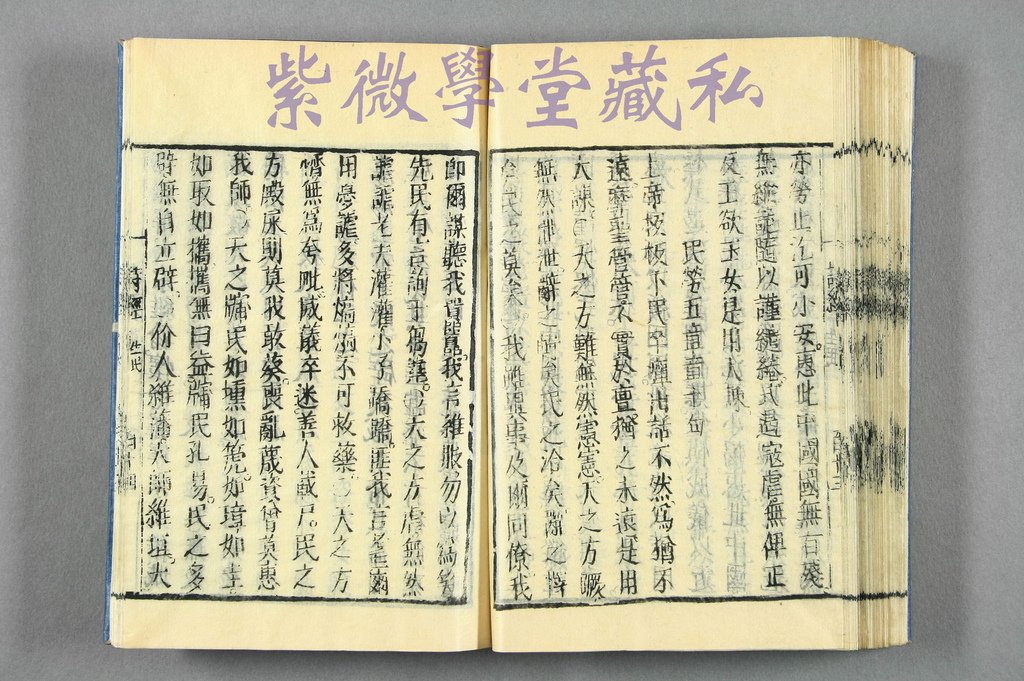 紫微學堂藏私
亦勞止汔可小安。惠此中國國無有殘
無縱詭隨以謹繾綣式遏寇虐無俾正
反王欲玉女是用大諫
民勞五章章十句
上帝板板下民卒癉出話不然為猶不
遠靡聖管管不實於亶猶之未遠是用
大諫 天之方難無然憲憲天之方蹶
無然泄泄辭之輯矣民之洽矣辭之懌
矣民之莫矣。我雖異事及爾同僚我
即爾謀聽我囂囂。我言維服勿以為笑
先民有言詢于芻蕘。天之方虐無然
謔謔老夫灌灌小子蹻蹻。匪我言耄爾
用憂謔多將熇熇不可救藥 天之方
懠無為夸毗威儀卒迷善人載尸。民之
方殿屎則莫我敢葵。喪亂蔑資曾莫惠
我師 天之牖民如壎如篪。如璋如圭
如取如攜攜無曰益牖民孔易。民之多
辟無自立辟 价人維藩大師維垣。大
詩經 生民